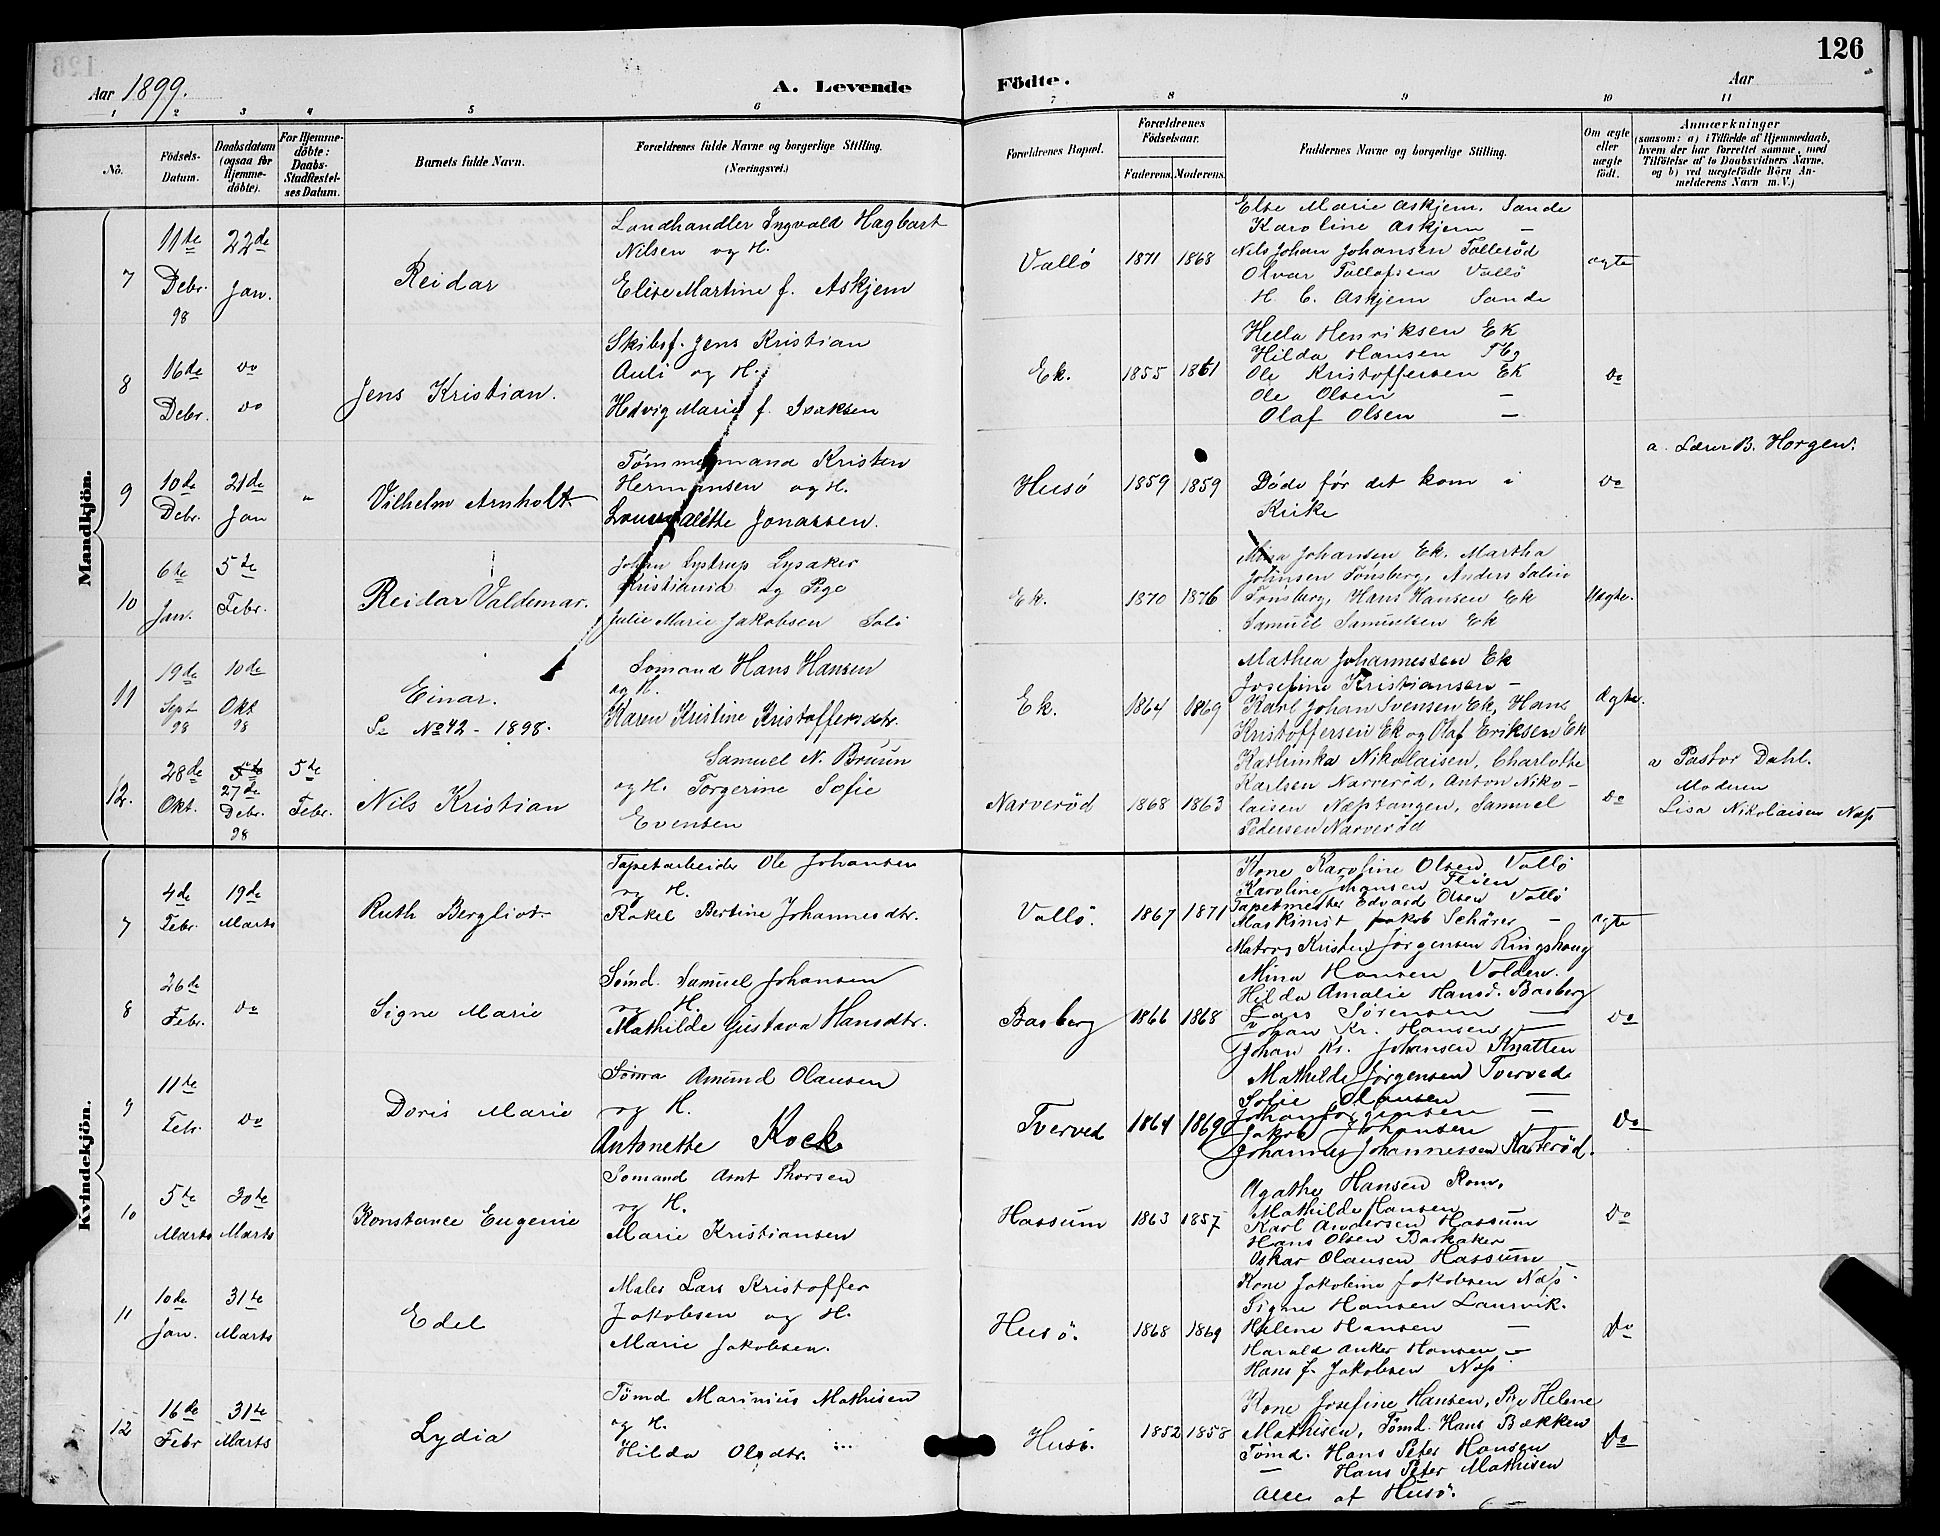 126
Aar 1899.
A. Levende Födte.
Aar
1 2 3 4 5 6 7 8 9 10 11
No.
Födsels-Datum.
Daabsdatum (ogsaa for Hjemme-döbte).
For Hjemme-döbte: Daabs-Stadfestel-ses Datum.
Barnets fulde Navn.
Forældrenes fulde Navne og borgerlige Stilling. (Næringsvei.)
Forældrenes Bopæl.
Forældrenes Födselsaar.
Faderens. Moderens.
Faddernes Navne og borgerlige Stilling.
Om ægte eller uægte födt.
Anmærkninger
(saasom: a) i Tilfælde af Hjemmedaab,
hvem der har forrettet samme, med
Tilföielse af to Daabsvidners Navne,
og b) ved uægtefödte Börn An-
melderens Navn m. V.)
Mandkjön.
7
11te Debr. 98
22de Jan.
Reidar
Landhandler Ingvald Hagbart
Nilsen og H.
Elise Martine f. Askjem
Vallö
1871 1868
Else Marie Askjem, Sande
Karoline Askjem —
Nils Johan Johansen Tallerød
Olvar Tollofsen Vallö
H. C. Askjem Sande
ægte
8
16de Debr.
do do
Jens Kristian.
Skibsf. Jens Kristian
Auli og H.
Hedvig Marie f. Isaksen
Ek.
1855 1861
Hella Henriksen Ek
Hilda Hansen
Ole Kristoffersen Ek
Ole Olsen —
Olaf Olsen —
do
9
10de Debr.
21de Jan
"
Vilhelm Arnholt
Tømmermand Kristen
Hermansen og H.
Alette Jonassen.
Husö
1859 1859
Døde før det kom i
Kirke
do
a. Lærer B. Horgen.
10
6te Jan.
5te Febr.
Reidar Valdemar.
Johan Lystrup Lysaker
Kristiania og Pige
Julie Marie Jakobsen
Ek.
1870 1876
Johansen Ek. Martha
Johnsen Tønsberg, Anders
Tønsberg, Hans Hansen Ek
Samuel Samuelsen Ek
Uægte.
11
19de Sept 98
10de Okt 98
Einar.
Se No 42 - 1898.
Sømand Hans Hansen
og H.
Karen Kristine Kristoffersdtr.
Ek.
1864 1869
Mathea Johannessen Ek
Josefine Kristiansen -
Karl Johan Svensen Ek, Hans
Kristoffersen Ek og Olaf Eriksen Ek
Ægte.
12.
28de Okt.
27de Debr. 98
5te Febr.
Nils Kristian
Samuel N. Bruun
og H. Torgerine Sofie
Evensen
Narverød
1868 1863
Kathinka Nikolaisen, Charlotte
Karlsen Narverød, Anton Niko-
laisen Næstangen, Samuel
Pedersen Narverød
do
a Pastor Dahl.
Moderen
Lisa Nikolaisen Næs
Kvindekjön.
7
4de Febr.
19de Marts
Ruth Bergliot
Tapetarbeider Ole Johansen
og H.
Rakel Bertine Johannesdtr.
Vallö.
1867 1871
Kone Karoline Olsen Vallö
Karoline Johansen
Tapetmester Edvard Olsen Vallö
Maskinist Jakob Schärer —
Matros Kristen Jørgensen Ringshaug
ægte
8
26de Febr.
do
Signe Marie
Sömd. Samuel Johansen
og H.
Mathilde Gustava Hansdtr.
Basberg
1866 1868
Mina Hansen Volden.
Hilda Amalie Hansd. Basberg
Lars Sørensen —
Johan Kr. Hansen —
Johan Kr. Johansen Knatten
do
9
11te Febr.
do
Doris Marie
Söma Amund Olausen
og H.
Antonette Kock
Tverved
1864 1869
Mathilde Jørgensen Tverved
Sofie Olausen —
Johan Jørgensen —
Jakob Johansen
Johannes Johannessen
do
10
5te Marts
30te Marts
Konstance Eugenie
Sømand Arnt Thorsen
og H.
Marie Kristiansen
Hassum
1863 1857
Agathe Hansen Rom.
Mathilde Hansen
Karl Andersen Hassum
Hans Olsen Barkaker
Oskar Olausen Hassum
do
11
10de Jan.
31te Marts
Edel
Maler Lars Kristoffer
Jakobsen og H.
Marie Jakobsen.
Husö.
1868 1869
Kone Jakobine Jakobsen Næs
Signe Hansen Laurvik.
Helene Hansen —
Harald Anker Hansen —
Hans J. Jakobsen Næs
do
12
16de Febr
31te Marts
Lydia
Tømd Marinius Mathisen
og H.
Hilda Olsdtr.
Husö.
1852 1858
Kone Josefine Hansen, Pige Helene
Mathisen, Tömd. Hans Bækken
Tömd. Hans Peter Hansen
— Hans Peter Mathisen
Alle af Husö.
do